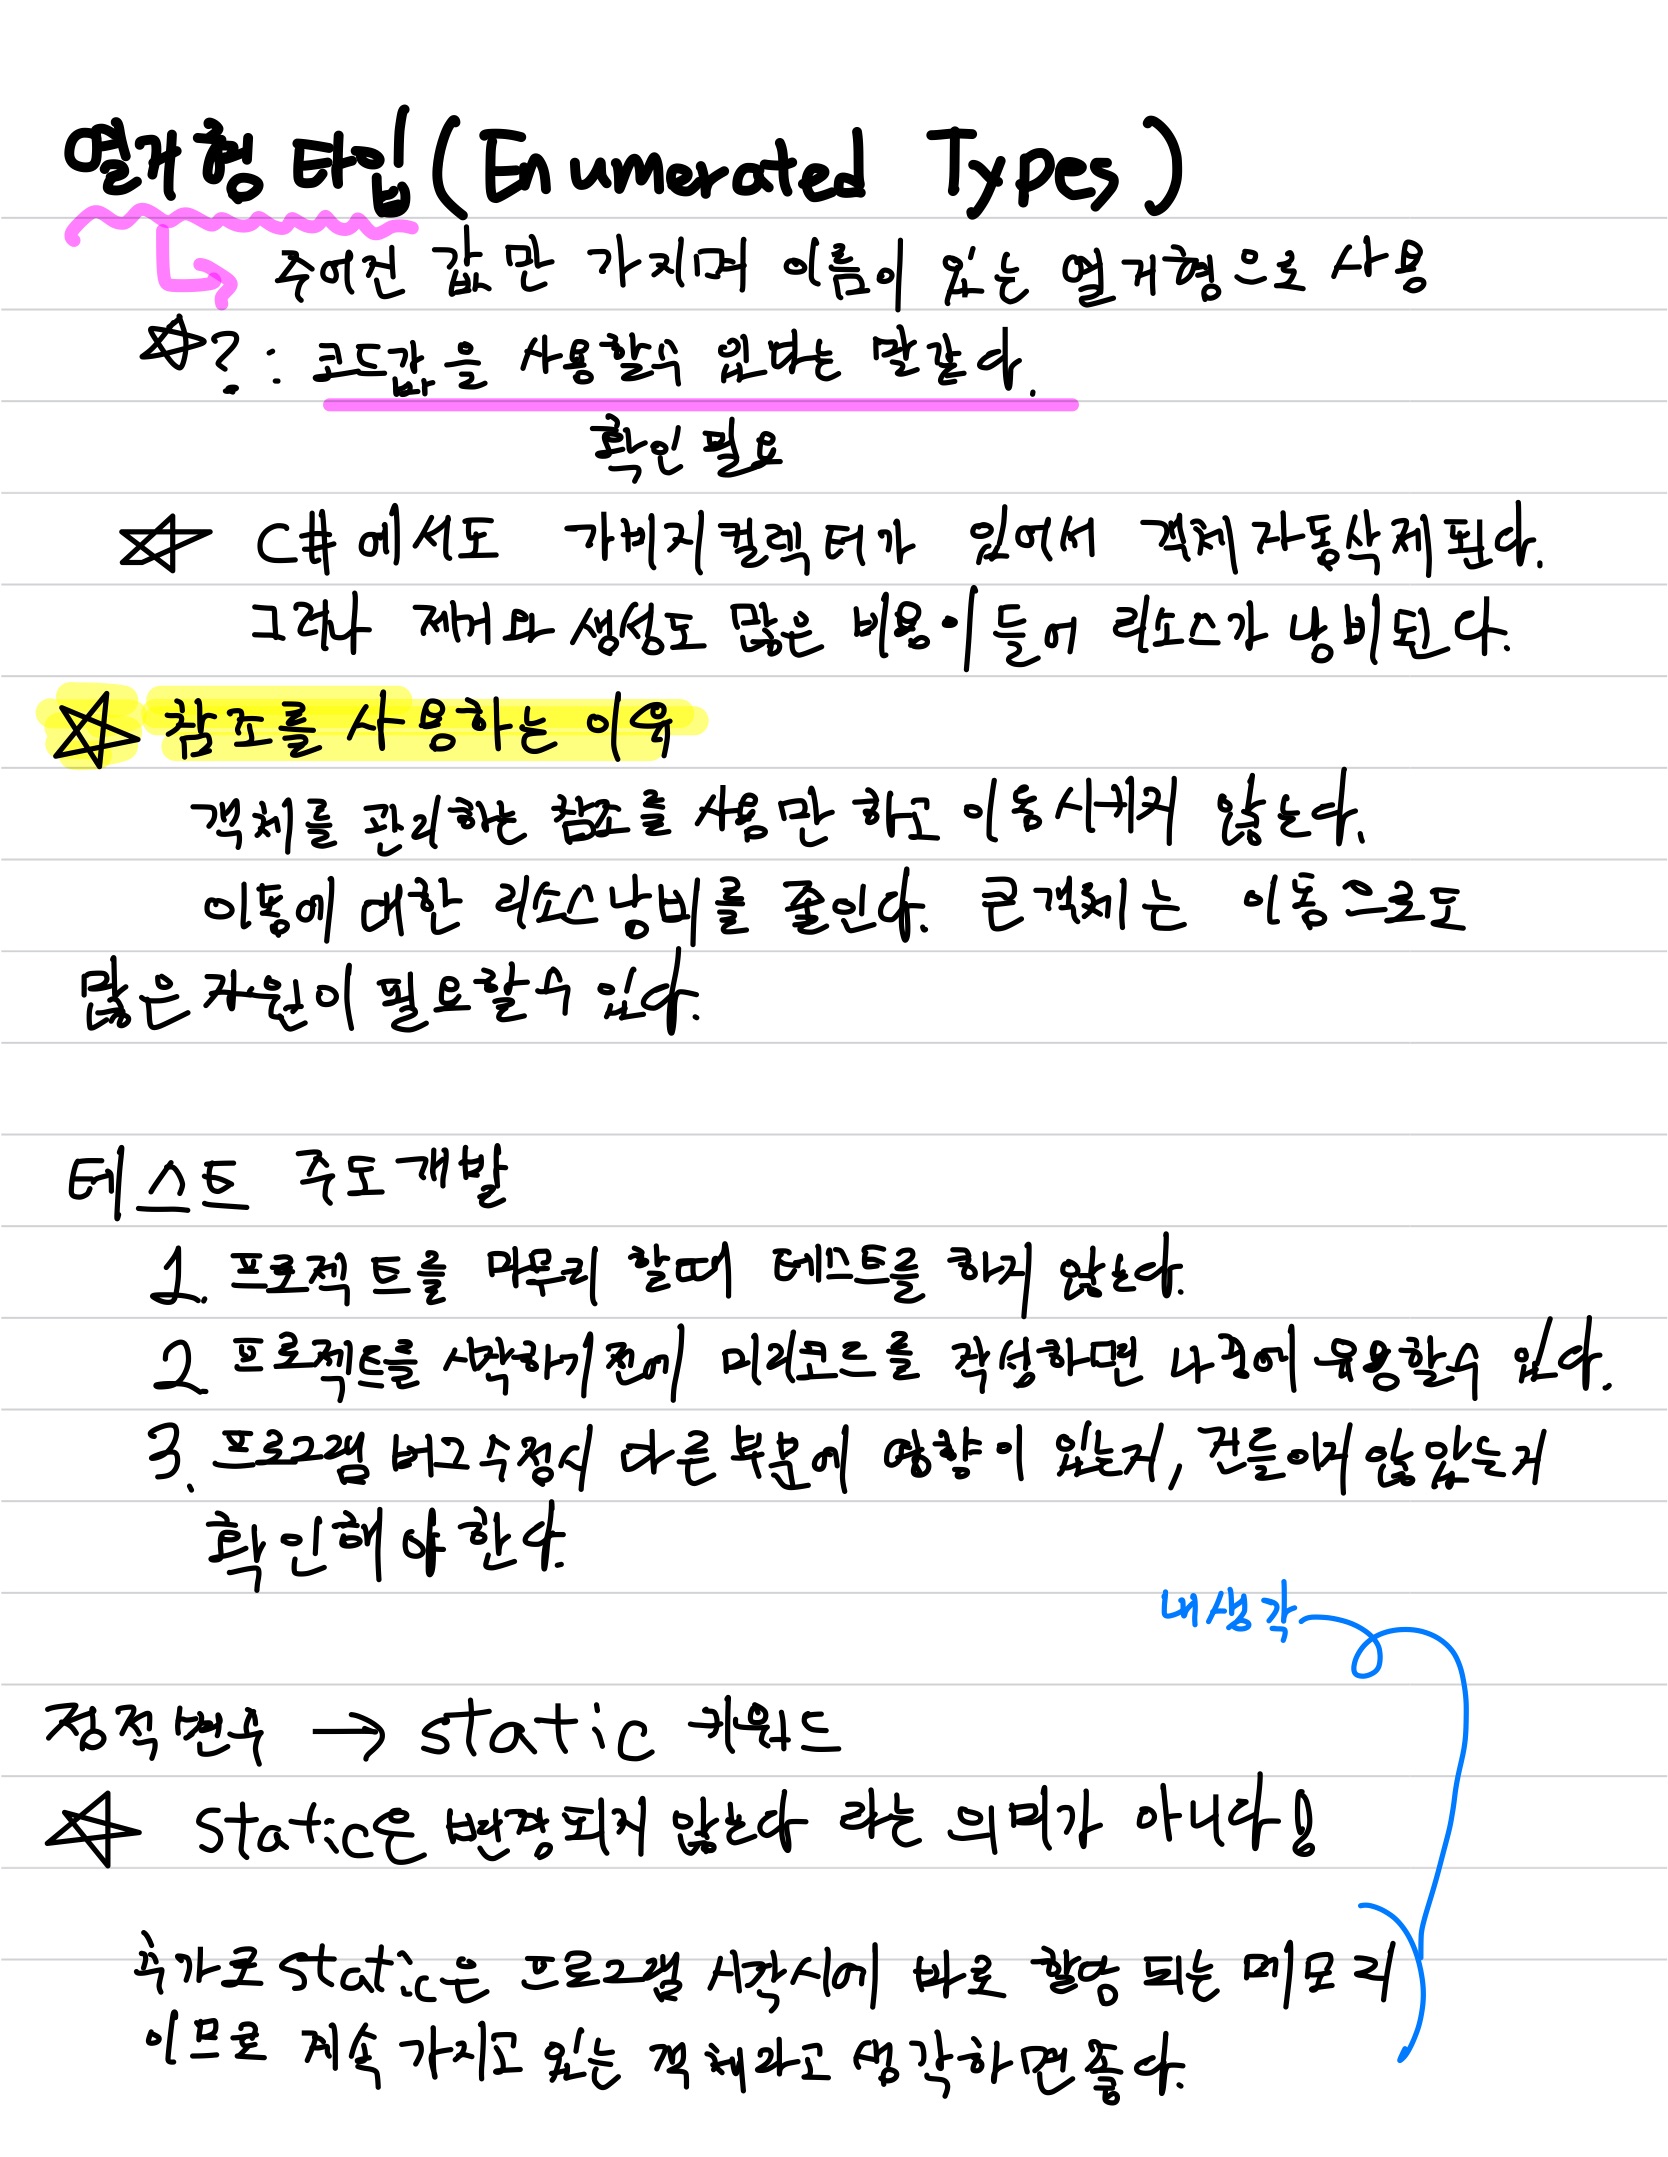 열거형 타입(Enumerated Types)
주어진 값만 가지며 이름이 있는 열거형으로 사용
☆?: 코드값을 사용할수 있다는 말같다.
확인 필요
☆ C#에서도 가비지컬렉터가 있어서 객체자동삭제된다.
그러나 제거와 생성도 많은 비용이 들어 리소스가 낭비된다.
☆ 참조를 사용하는 이유
객체를 관리하는 참조를 사용만 하고 이동시키지 않는다.
이동에 대한 리소스낭비를 줄인다. 큰객체는 이동으로도
많은 자원이 필요할수 있다.
테스트 주도개발
1. 프로젝트를 마무리 할때 테스트를 하지 않는다.
2 프로젝트를 시작하기전에 미리코드를 작성하면 나중에 유용할수 있다.
3. 프로그램 버그수정시 다른 부분에 영향이 있는지, 건들이지 않았는지
확인해야 한다.
내생각
정적변수 → static 키워드
☆ static은 변경되지 않는다 라는 의미가 아니다!
추가로 static은 프로그램 시작시에 바로 할당 되는 메모리
이므로 계속 가지고 있는 객체라고 생각하면좋다.